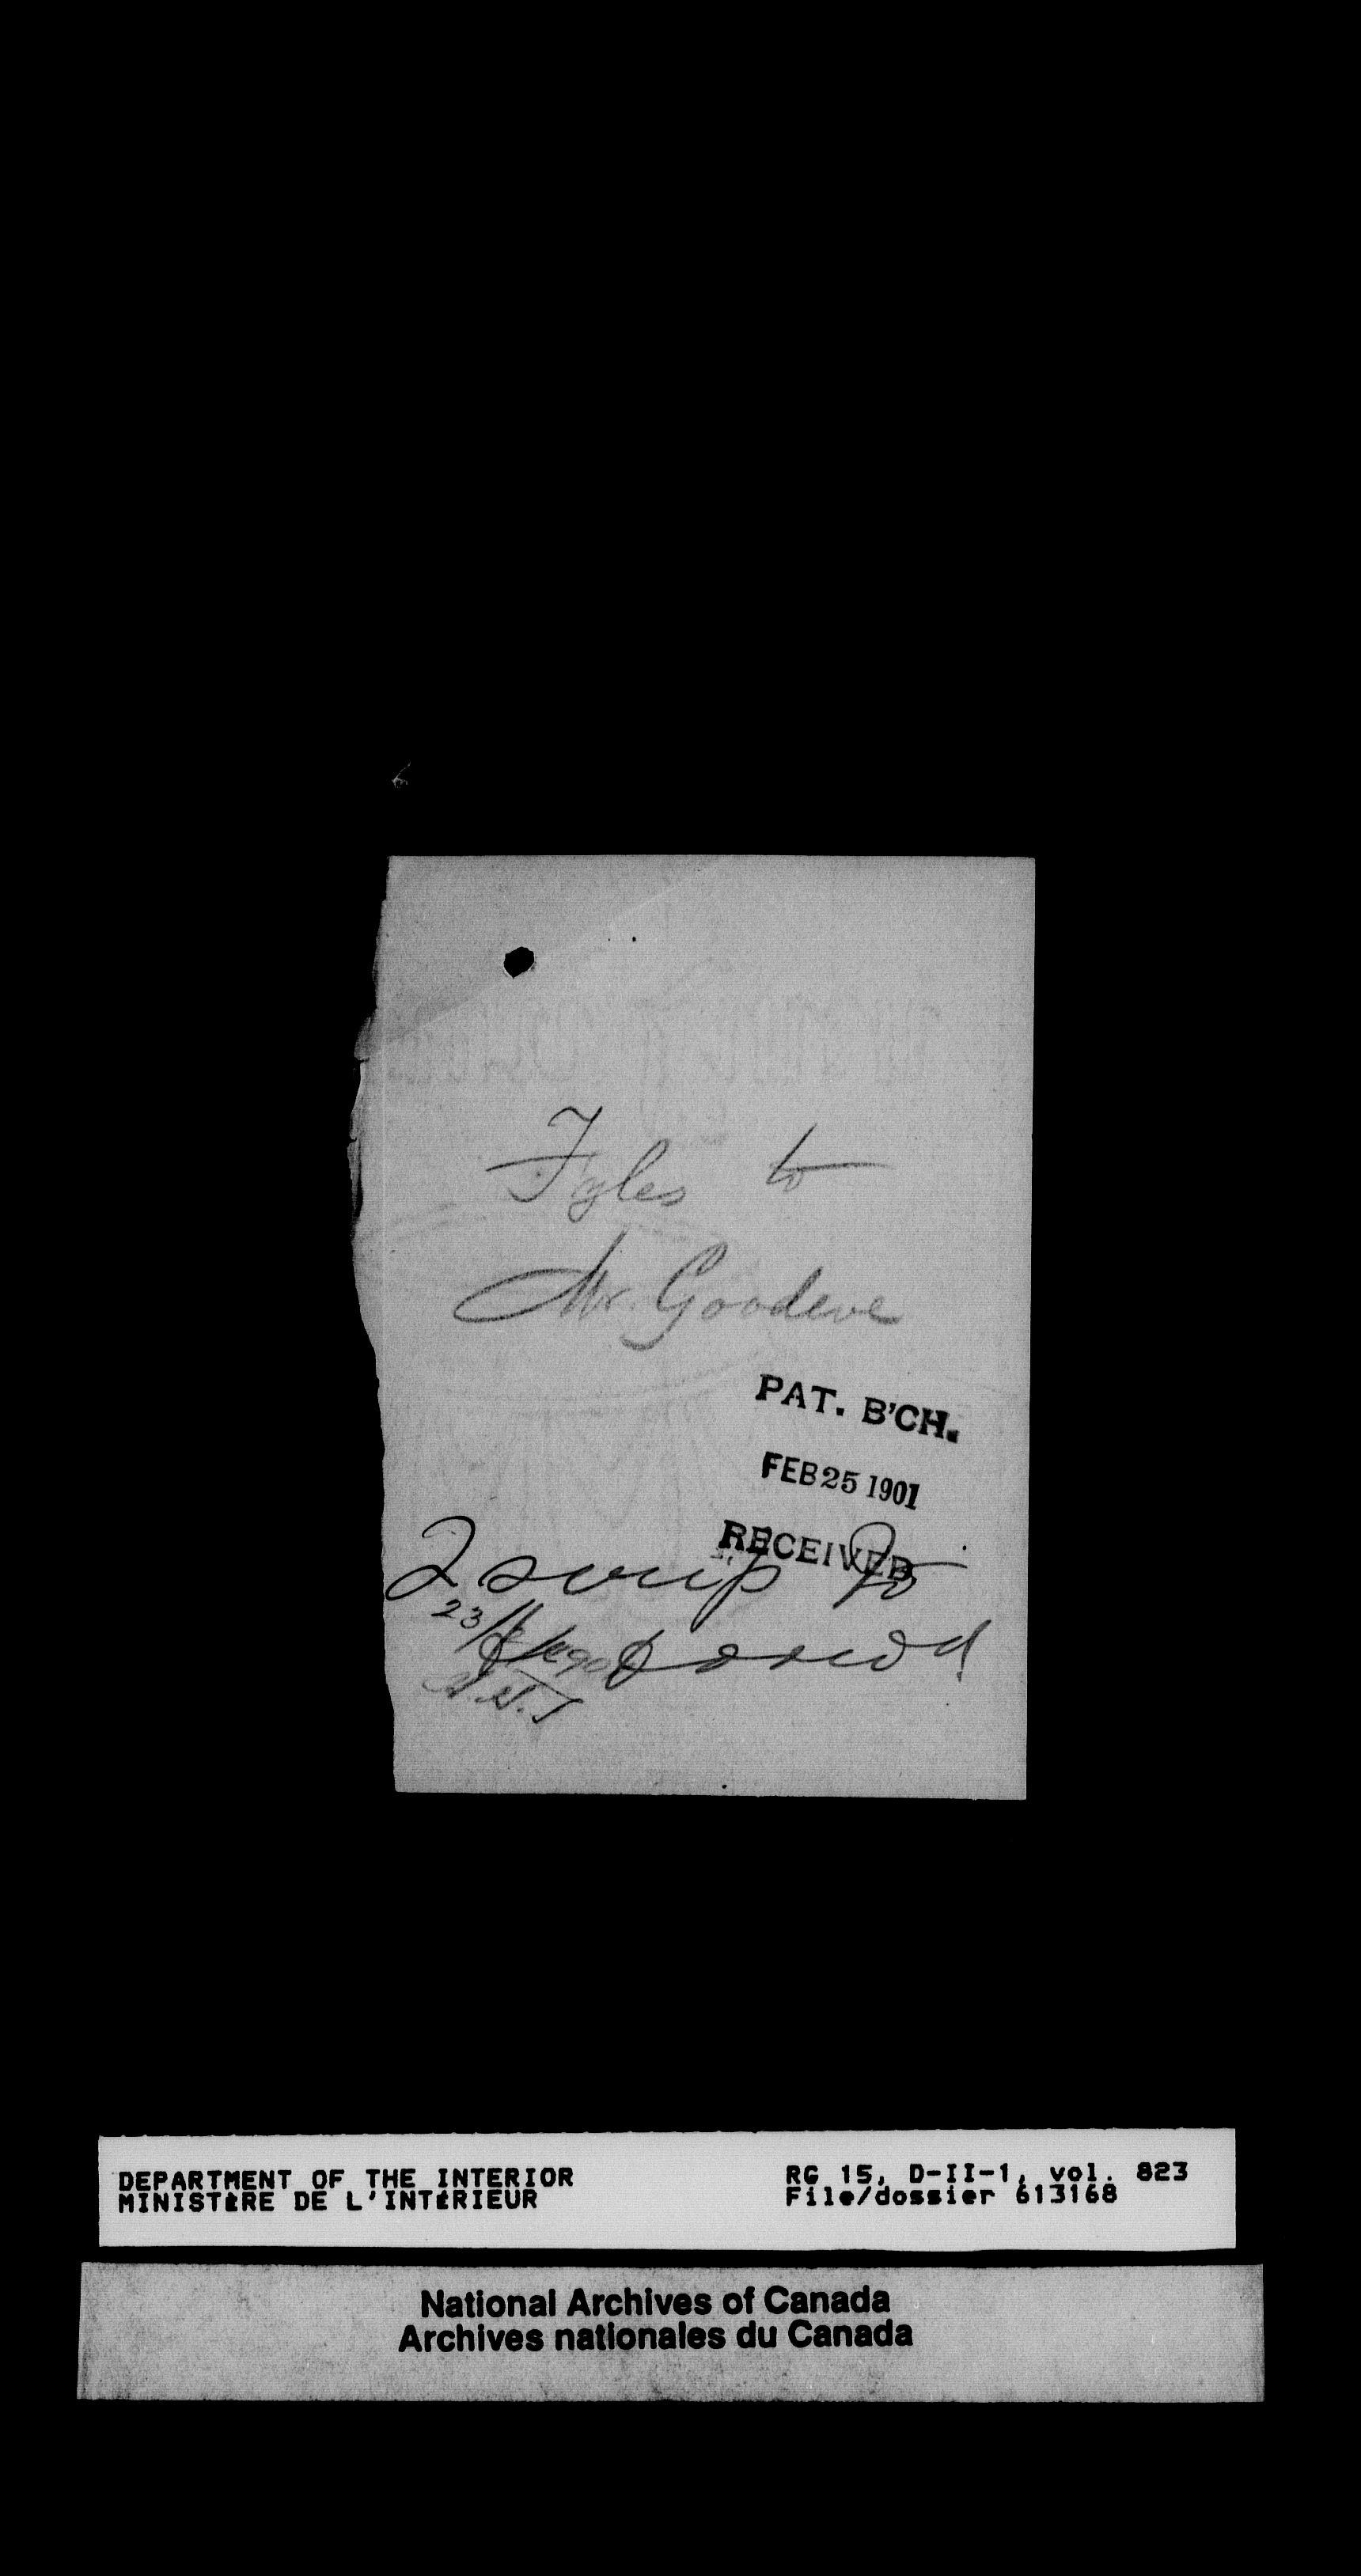 Fyles to
Mr. Goodeve
PAT. B'CH.
FEB 25 1901
RECEIVED
2 scrip to
23/
DEPARTMENT OF THE INTERIOR
MINISTÈRE DE L'INTÉRIEUR
RG 15, D-II-1, vol. 823
File/dossier 613168
National Archives of Canada
Archives nationales du Canada